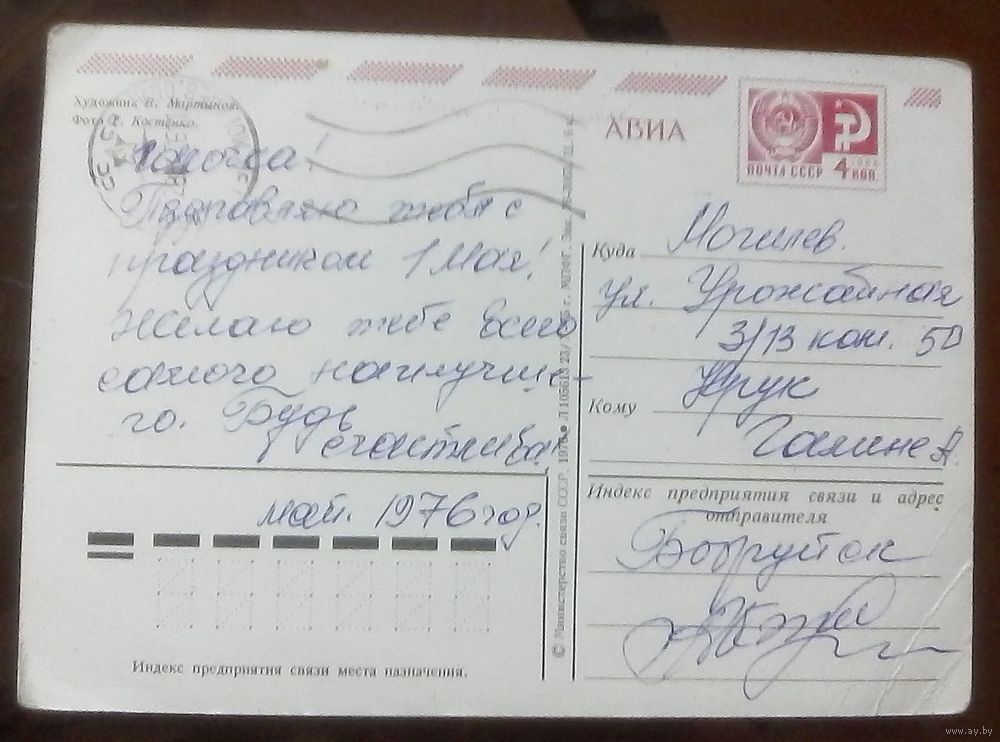 Художник В. Мартынов.
Фото Г. Костенко.
АВИА
ПОЧТА СССР 4 КОП.
1966
Поздравляю тебя с
праздником 1 Мая!
Желаю тебе всего
самого наилучше-
го. Будь
счастлива
май. 1976 год.
Индекс предприятия связи места назначения.
© Министерство связи СССР. 1976
Куда Могилев.
ул. Урожайная
3/13 ком. 50
Кому
Галине А.
Индекс предприятия связи и адрес
отправителя
Бобруйск
www.ay.by